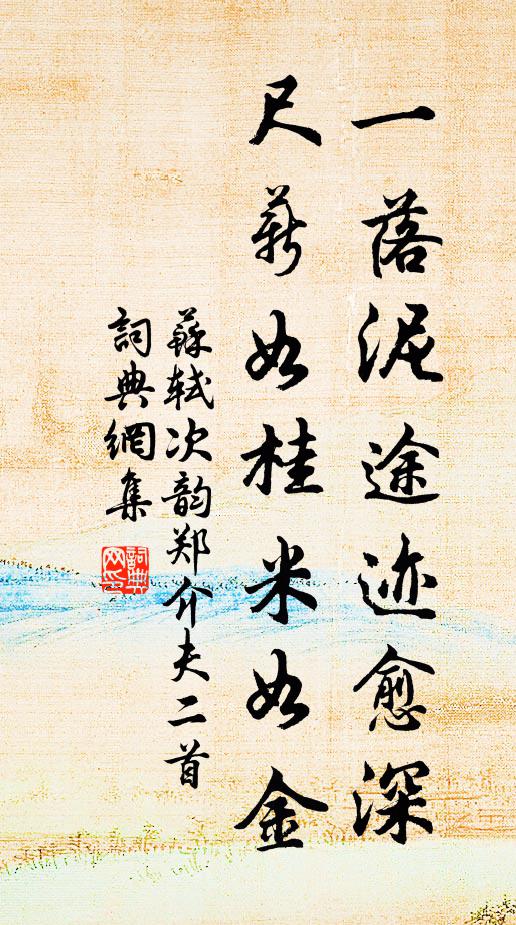 一落泥途迹愈深
尺薪如桂米如金
蘇轼次韵郑介夫二首
詞典網集
詞典
网印